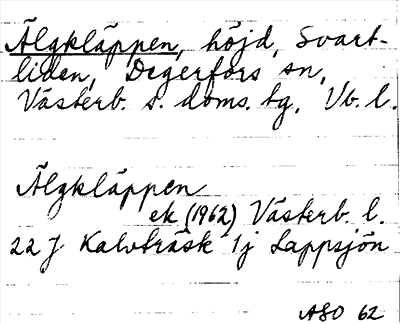 Älgkläppen, höjd, Svart-
liden, Degerfors sn,
Västerb. s. doms. tg, Vb. l.
Älgkläppen
ek (1962) Västerb. l.
22 J Kalvträsk 1j Lappsjön
ASO 62